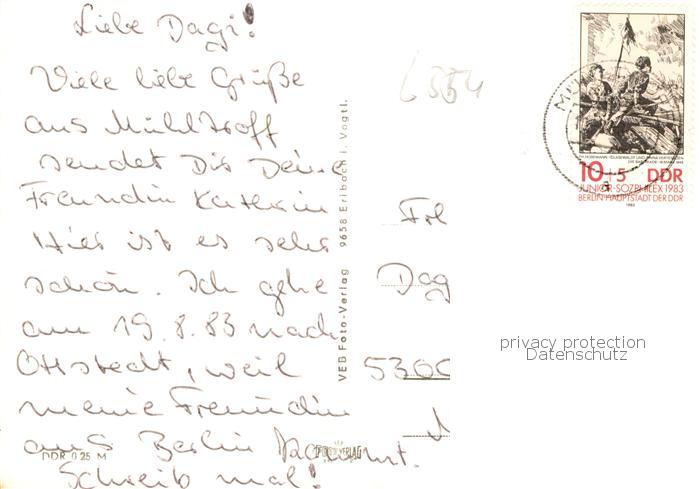 Liebe Dagi!
Viele liebe Grüße
aus Mühltroff
sendet Dir Deine
Freundin Katerin
Hier ist es sehr
schön. Ich gehe
am 19.8.83 nach
Ottstedt, weil
meine Freundin
aus Berlin kommt.
Schreib mal!
DDR 0 25 M
VEB Foto-Verlag 9658 Erlbach i. Vogtl.
FOTO VERLAG
6554
10+5 DDR
JUNIOR-SOZPHILEX 1983
BERLIN HAUPTSTADT DER DDR
1983
MÜ
Frl
Dag
5300
privacy protection
Datenschutz